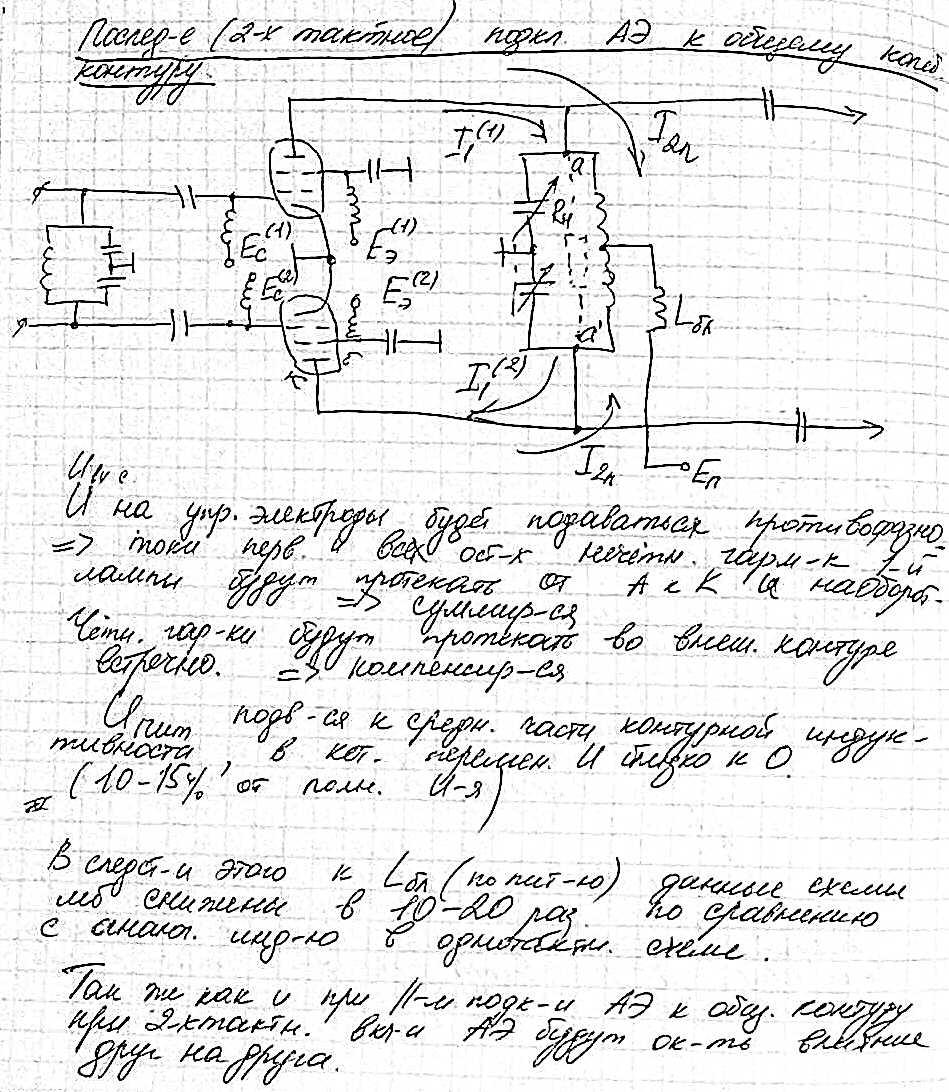 Послед-е (2-х тактное) подкл. АЭ к общему колеб.
контуру.
I₁⁽¹⁾
I₂ₙ
a
Rн
Eс⁽¹⁾
Eэ⁽¹⁾
Eс⁽²⁾
Eэ⁽²⁾
Lбл
a'
к
I₁⁽²⁾
I₂ₙ
Eп
U на упр. электроды будет подаваться противофазно
=> токи перв. и всех ост-х нечётн. гарм-к 1-й
лампы будут протекать от А к К и наоборот.
=> суммир-ся
Чётн. гар-ки будут протекать во внеш. контуре
встречно. => компенсир-ся
Uпит подв-ся к средн. части контурной индук-
тивности, в кот. перемен. U близко к 0
(10-15% от полн. U-я)
В следст-и этого к Lбл (по пит-ю) данные схемы
мб снижены в 10-20 раз по сравнению
с аналог. инд-ю в однотактн. схеме.
Так же как и при ||-м подк-и АЭ к общ. контуру
при 2-хтактн. вкл-и АЭ будут ок-ть влияние
друг на друга.